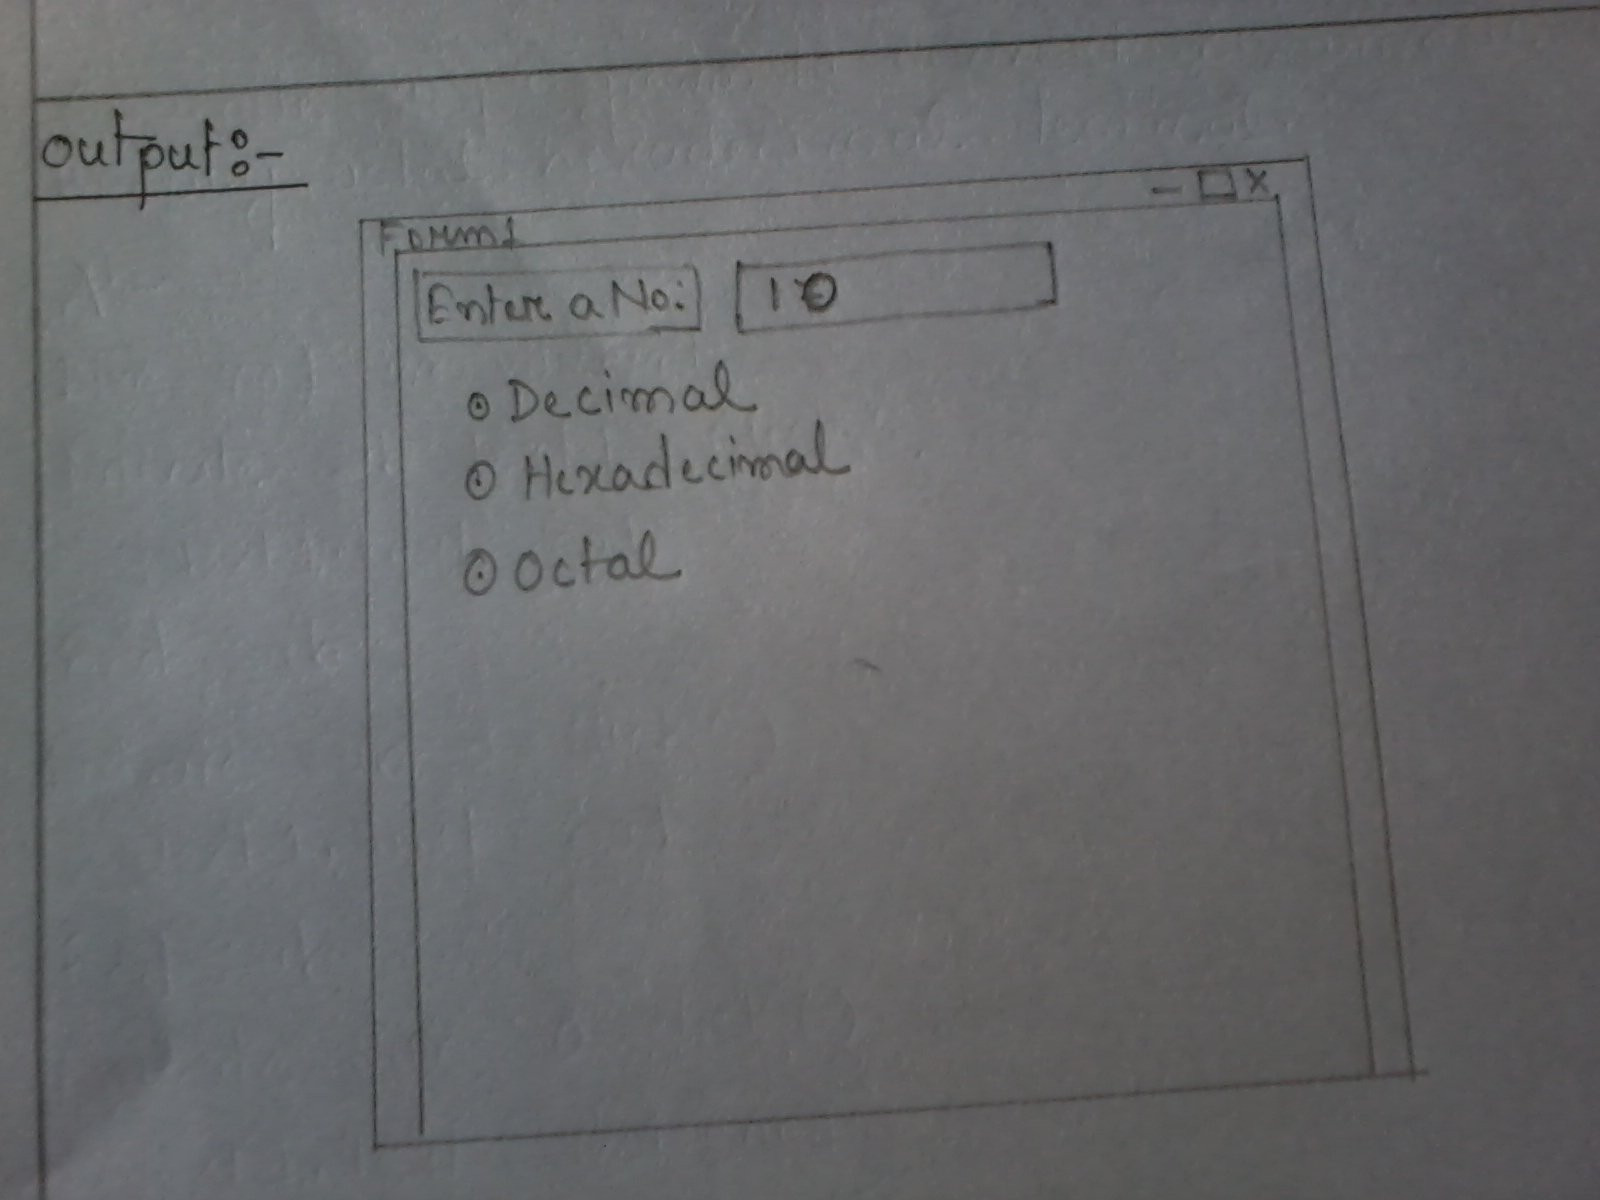 output:-
Form1 - □ X
Enter a No: 10
Decimal
Hexadecimal
Octal